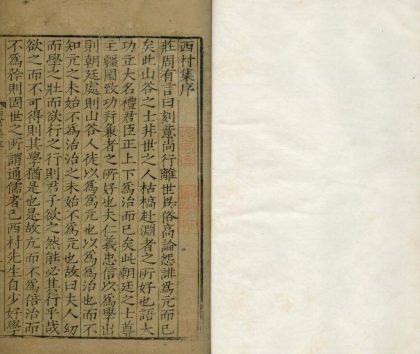 西村集序
莊周有言曰刻意尚行離世異俗高論怨誹爲亢而已
矣此山谷之士非世之人枯槁赴淵者之所好也語大
功立大名禮君臣正上下爲治而已矣此朝廷之士尊
主疆國致功并兼者之所好也夫仁義忠信以爲學出
則朝廷處則山谷人徒以爲爲亢也以爲爲治也而不
知亢之未始不爲治治之未始不爲亢也故曰夫人幼
而學之壯而欲行之行則君子欲之然能必其行乎哉
欲之而不可得則其學猶是也是故亢而不爲倍治而
不爲徇則固世之所謂通儒者已西村先生自少好學